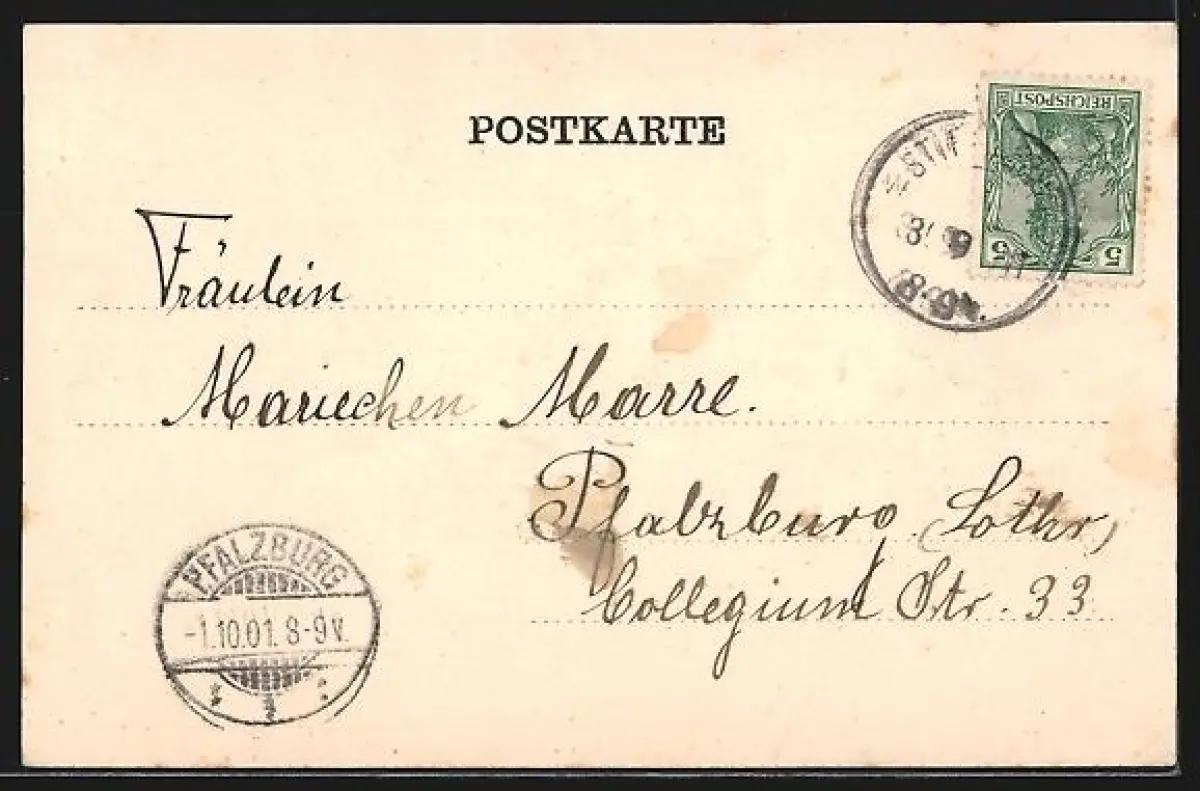 POSTKARTE
REICHSPOST
5 5
Fräulein
Mariechen Marre.
Pfalzburg (Lothr)
Collegium Str. 33
PFALZBURG
-1.10.01. 8-9 V.